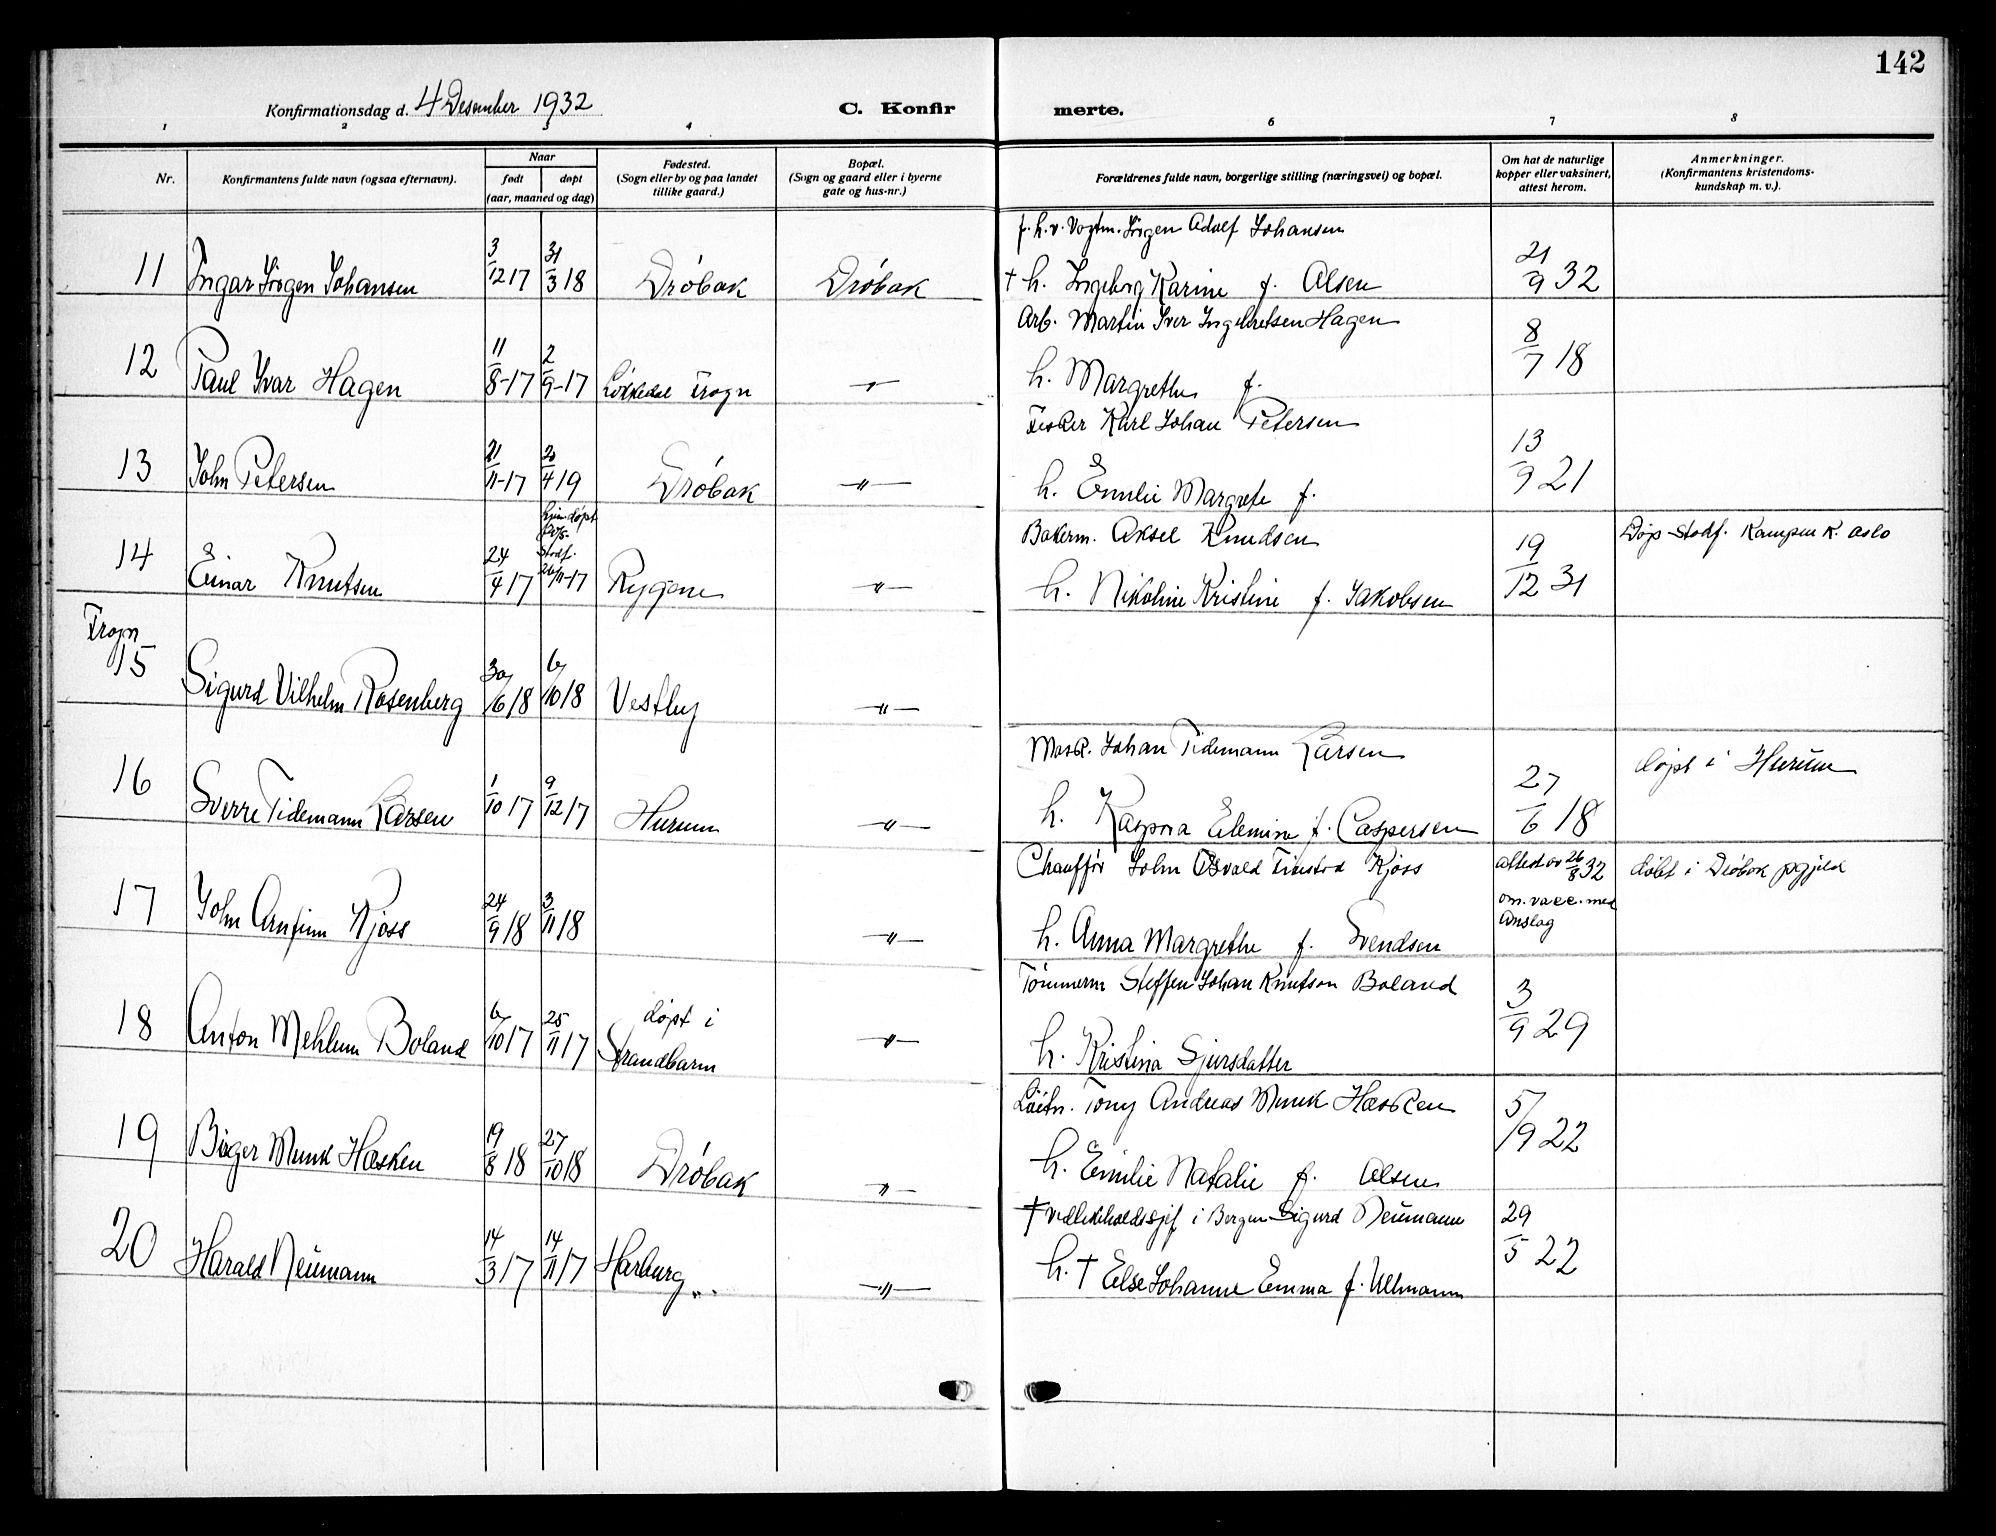 142
Konfirmationsdag d. 4 Desember 1932
C. Konfir merte.
1 2 3 4 5 6 7 8
Nr.
Konfirmantens fulde navn (ogsaa efternavn).
Naar
født døpt
(aar, maaned og dag)
Fødested.
(Sogn eller by og paa landet
tillike gaard.)
Bopæl.
(Sogn og gaard eller i byerne
gate og hus-nr.)
Forældrenes fulde navn, borgerlige stilling (næringsvei) og bopæl.
Om hat de naturlige
kopper eller vaksinert,
attest herom.
Anmerkninger.
(Konfirmantens kristendoms-
kundskap m. v.).
f. h. v. Vogtm. Jörgen Adolf Johansen
11 Ingar Jörgen Johansen 3/12 17 31/3 18 Dröbak Dröbak † h. Ingeborg Karine f. Olsen 21/9 32
Arb. Martin Iver Ingebretsen Hagen
12 Paul Ivar Hagen 11/8-17 2/9-17 Frogn — " — h. Margrethe f. 8/7 18
Fisker Karl Johan Petersen
13 John Petersen 21/11-17 20/4 19 Dröbak — " — h. Emilie Margrete f. 13/9 21
hjemdøpt
stadf.
Bakerm. Aksel Knudsen
14 Einar Knutsen 24/4 17 26/11-17 Rygene — " — h. Nikoline Kristine f. Jakobsen 19/12 31 Døp. Stadf. Kampen K. Oslo
Frogn
15 Sigurd Vilhelm Rosenberg 30/6 18 6/10 18 Vestby — " —
Mask. Johan Tidemann Larsen
16 Sverre Tidemann Larsen 1/10 17 9/12 17 Hurum — " — h. Kaspara Elemine f. Caspersen 27/6 18 døpt i Hurum
Chaufför John Osvald Fikstad Kjoss
17 John Arnfinn Kjoss 24/9 18 3/11 18 — " — h. Anna Margrethe f. Svendsen attest av 26/8 32
om. vacc. med
anslag
döbt i Dröbak pgjeld
Tömmerm Steffen Johan Knutson Boland
18 Anton Mehlum Boland 6/10 17 25/11 17 døpt i
Strandbarm — " — h. Kristina Sjursdatter 3/9 29
Löitn. Tony Andreas Munk Hasken
19 Birger Munk Hasken 19/8 18 27/10 18 Dröbak — " — h. Emilie Natalie f. Olsen 5/9 22
† vedlikeholdssjef i Bergen Sigurd Neumann
20 Harald Neumann 14/3 17 14/11 17 Harburg — " — h. † Else Johanne Emma f. Ullmann 29/5 22